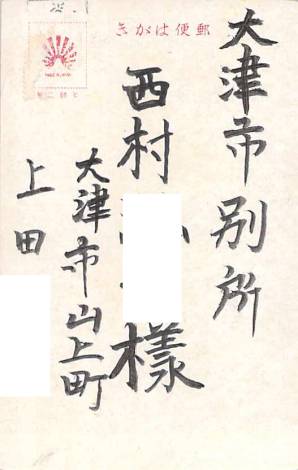 郵便はがき
大津市別所
西村 様
大津市山上町
上田